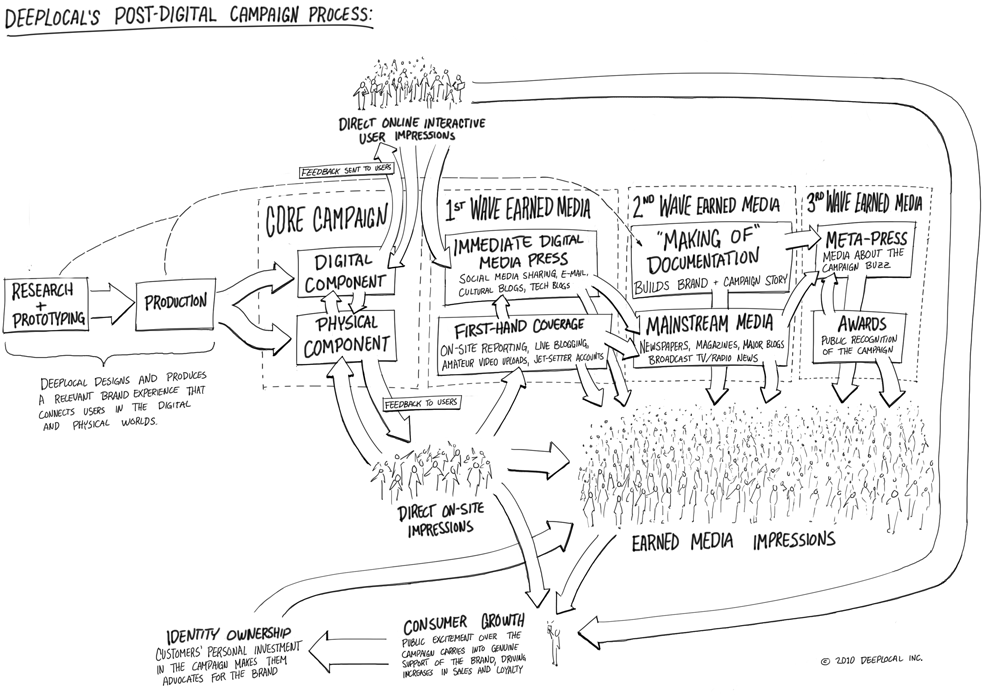 DEEPLOCAL'S POST-DIGITAL CAMPAIGN PROCESS:
DIRECT ONLINE INTERACTIVE
USER IMPRESSIONS
FEEDBACK SENT TO USERS
CORE CAMPAIGN
1ST WAVE EARNED MEDIA
2ND WAVE EARNED MEDIA
3RD WAVE EARNED MEDIA
RESEARCH
+
PROTOTYPING
PRODUCTION
DIGITAL
COMPONENT
PHYSICAL
COMPONENT
IMMEDIATE DIGITAL
MEDIA PRESS
SOCIAL MEDIA SHARING, E-MAIL,
CULTURAL BLOGS, TECH BLOGS
FIRST-HAND COVERAGE
ON-SITE REPORTING, LIVE BLOGGING,
AMATEUR VIDEO UPLOADS, JET-SETTER ACCOUNTS
"MAKING OF"
DOCUMENTATION
BUILDS BRAND + CAMPAIGN STORY
MAINSTREAM MEDIA
NEWSPAPERS, MAGAZINES, MAJOR BLOGS
BROADCAST TV/RADIO NEWS
META-PRESS
MEDIA ABOUT THE
CAMPAIGN BUZZ
AWARDS
PUBLIC RECOGNITION
OF THE CAMPAIGN
DEEPLOCAL DESIGNS AND PRODUCES
A RELEVANT BRAND EXPERIENCE THAT
CONNECTS USERS IN THE DIGITAL
AND PHYSICAL WORLDS.
FEEDBACK TO USERS
DIRECT ON-SITE
IMPRESSIONS
EARNED MEDIA IMPRESSIONS
IDENTITY OWNERSHIP
CUSTOMERS' PERSONAL INVESTMENT
IN THE CAMPAIGN MAKES THEM
ADVOCATES FOR THE BRAND
CONSUMER GROWTH
PUBLIC EXCITEMENT OVER THE
CAMPAIGN CARRIES INTO GENUINE
SUPPORT OF THE BRAND, DRIVING
INCREASES IN SALES AND LOYALTY
© 2010 DEEPLOCAL INC.